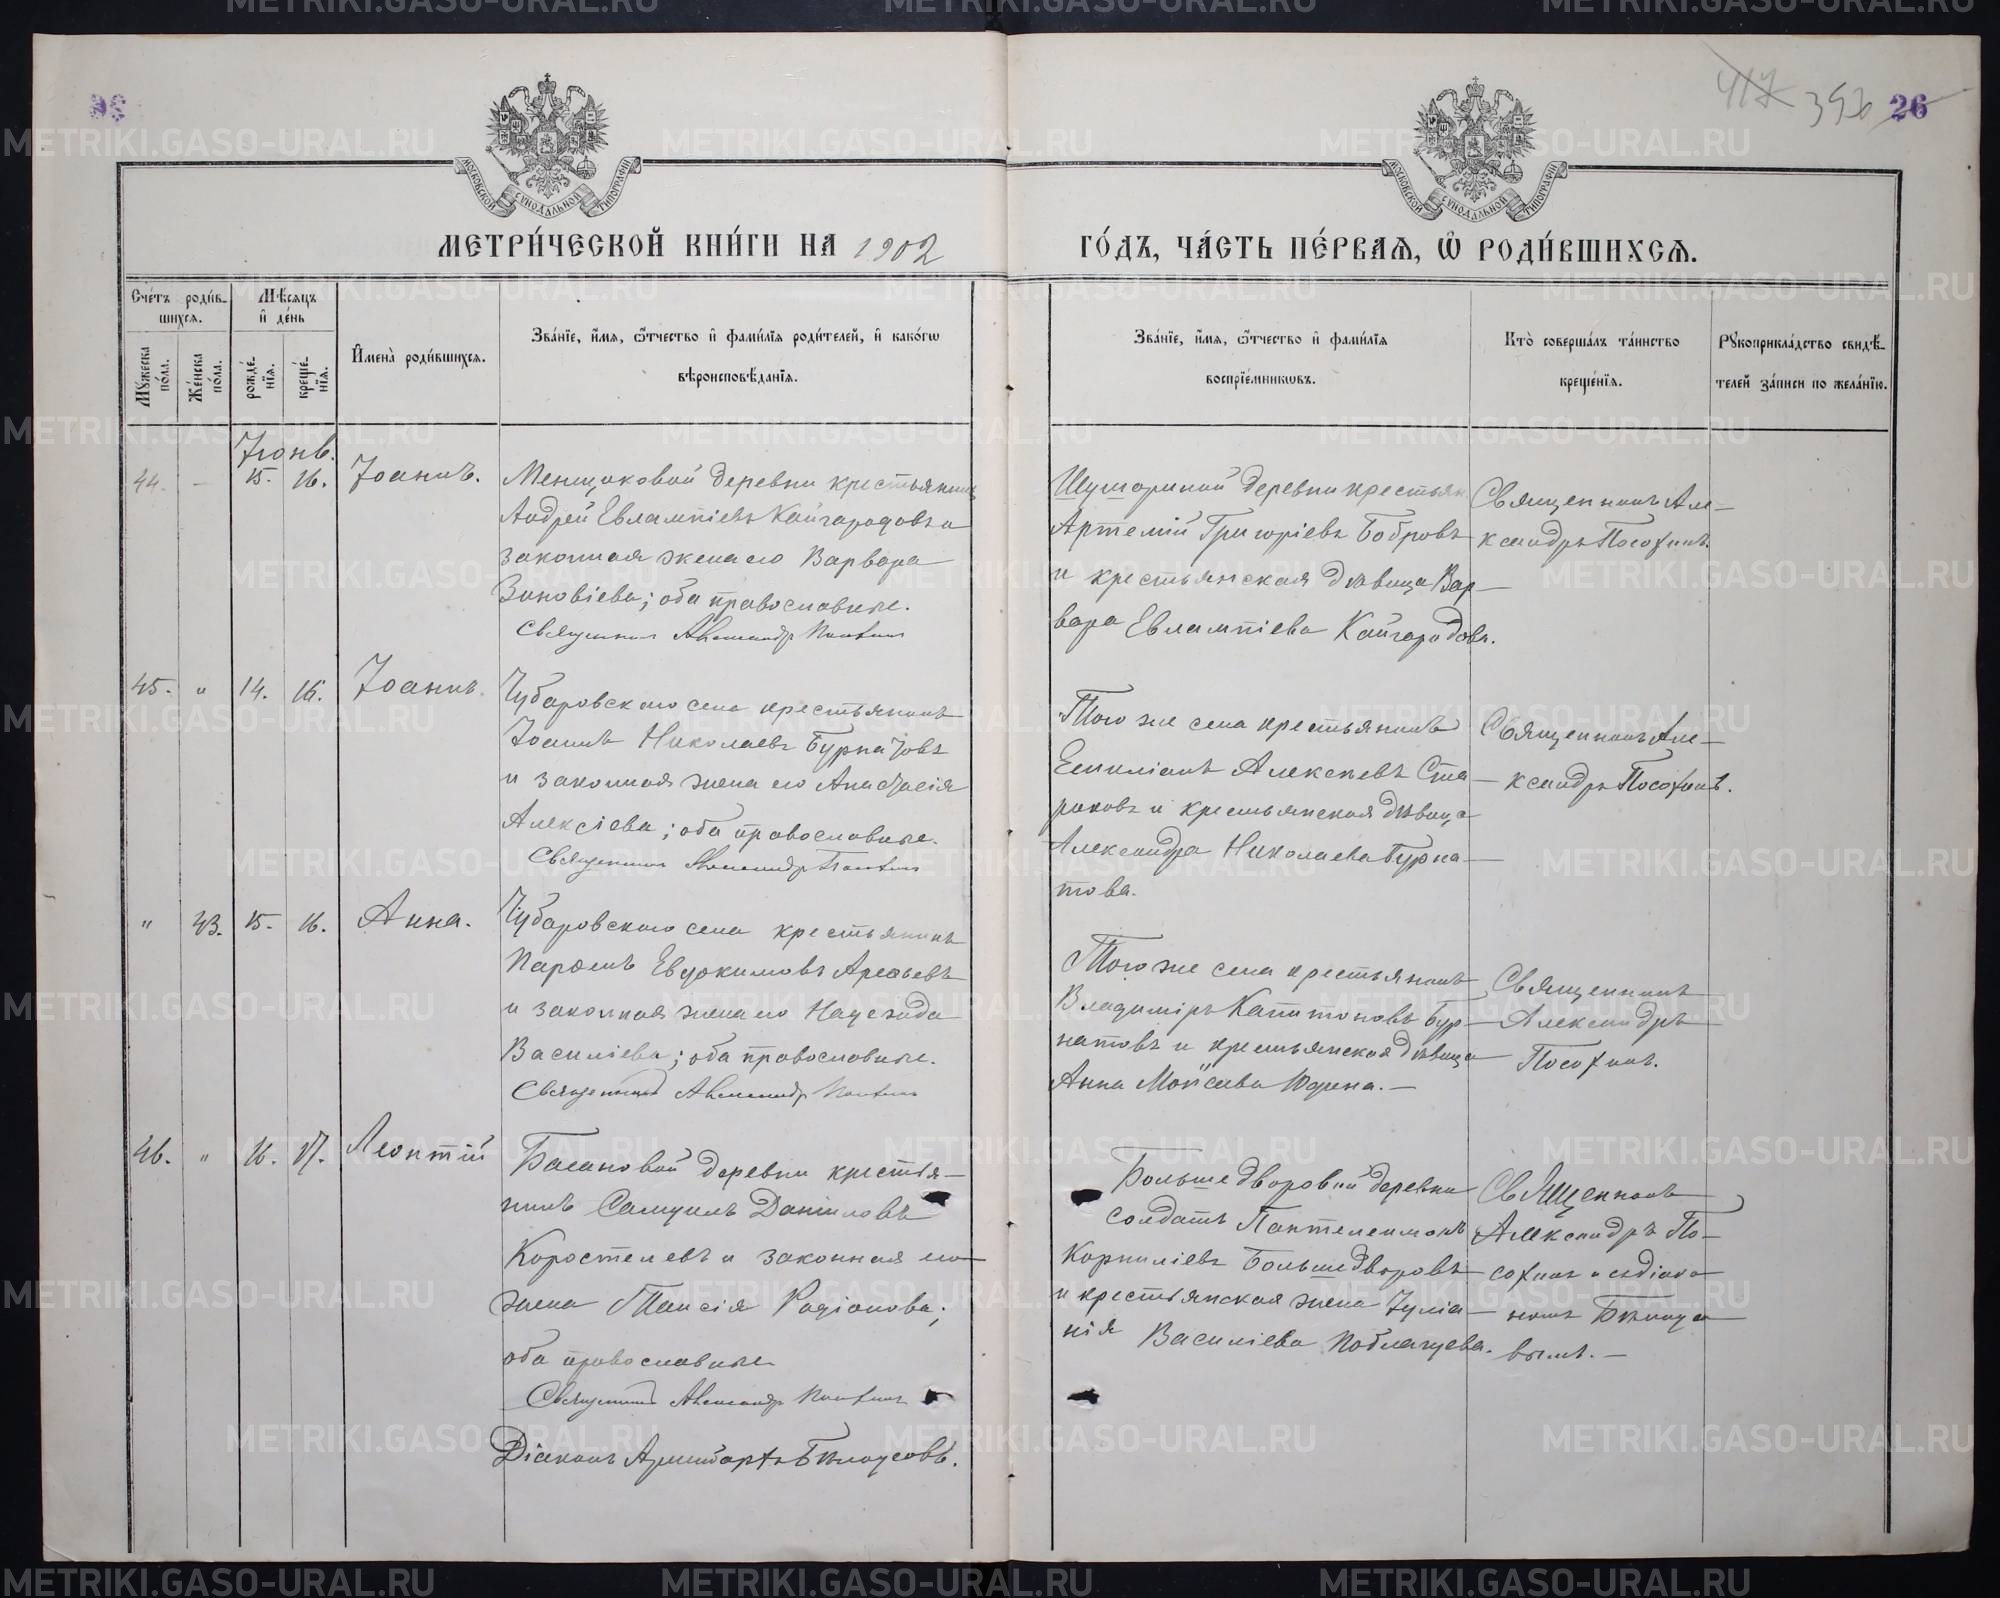 417 396 26
МОСКОВСКОЙ СѴНОДАЛЬНОЙ ТИПОГРАФІИ
МОСКОВСКОЙ СѴНОДАЛЬНОЙ ТИПОГРАФІИ
МЕТРИ́ЧЕСКОЙ КНИ́ГИ НА 1902
ГО́ДЪ, ЧА́СТЬ ПЕ́РВАѦ, Ѽ РОДИ́ВШИХСѦ.
Сче́тъ роди́в-
шихсѧ.
Мꙋ́жеска
по́ла.
Же́нска
по́ла.
Мѣ́сѧцъ
и҆ де́нь
рожде́-
нїѧ.
креще́-
нїѧ.
И҆мена̀ роди́вшихсѧ.
Зва́нїе, и҆́мѧ, ѻ҆́тчество и҆ фами́лїѧ роди́телей, и҆ како́гѡ
вѣроисповѣ́данїѧ.
Зва́нїе, и҆́мѧ, ѻ҆́тчество и҆ фами́лїѧ
воспрїе́мникѡвъ.
Кто̀ соверша́лъ та́инство
креще́нїѧ.
Рꙋкоприкла́дство свидѣ́-
телей за́писи по жела́нїю.
Іюнь.
44. — 15. 16. Іоаннъ.
Менщиковой деревни крестьянинъ
Андрей Евлампіевъ Кайгородовъ и
законная жена его Варвара
Зиновіева; оба православные.
Священникъ Александръ Посохинъ
Шушариной деревни крестьян.
Артемій Григоріевъ Бобровъ
и крестьянская дѣвица Вар-
вара Евлампіева Кайгородова.
Священникъ Але-
ксандръ Посохинъ.
45. " 14. 16. Іоаннъ.
Чубаровскаго села крестьянинъ
Іоаннъ Николаевъ Бурнатовъ
и законная жена его Анастасія
Алексіева; оба православные.
Священникъ Александръ Посохинъ
Того же села крестьянинъ
Емиліанъ Алексѣевъ Ста-
риковъ и крестьянская дѣвица
Александра Николаева Бурна-
това.
Священникъ Але-
ксандръ Посохинъ.
" 43. 15. 16. Анна.
Чубаровскаго села крестьянинъ
Парѳенъ Евдокимовъ Арефьевъ
и законная жена его Надежда
Василіева; оба православные.
Священникъ Александръ Посохинъ
Того же села крестьянинъ
Владиміръ Капитоновъ Бур-
натовъ и крестьянская дѣвица
Анна Мойсеева Юдина. —
Священникъ
Александръ
Посохинъ.
46. " 16. 17. Леонтій
Басановой деревни крестья-
нинъ Самуилъ Даніиловъ
Коростелевъ и законная его
жена Таисія Родіонова;
оба православные
Священникъ Александръ Посохинъ
Діаконъ Аристархъ Бѣлоусовъ.
Большедворовой деревни
солдатъ Пантелеимонъ
Корниліевъ Большедворовъ
и крестьянская жена Іуліа-
нія Василіева Поблагуева.
Священникъ
Александръ По-
сохинъ и съ діако-
номъ Бѣлоусо-
вымъ. —
METRIKI.GASO-URAL.RU